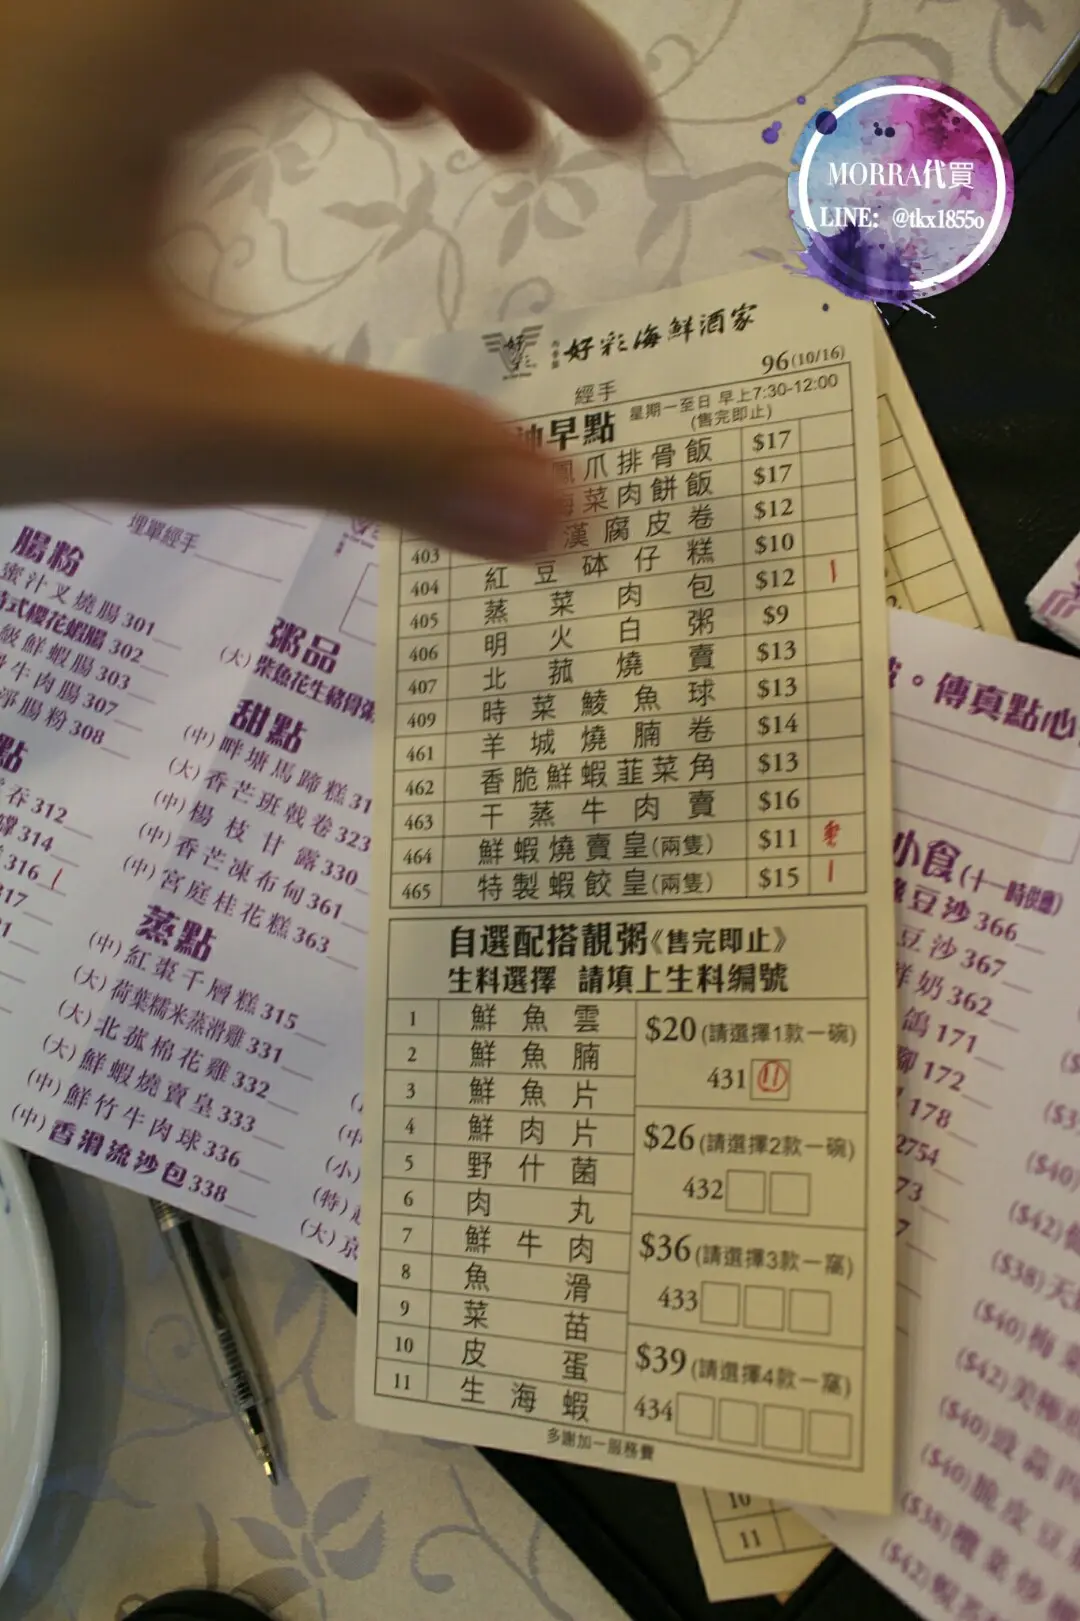 MORRA代買
LINE: @tkx1855o
好彩海鮮酒家
96(10/16)
經手
早點
星期一至日 早上7:30-12:00
(售完即止)
爪排骨飯 $17
菜肉餅飯 $17
403 漢腐皮卷 $12
404 紅豆砵仔糕 $10
405 蒸菜肉包 $12
406 明火白粥 $9
407 北菰燒賣 $13
409 時菜鯪魚球 $13
461 羊城燒腩卷 $14
462 香脆鮮蝦韮菜角 $13
463 干蒸牛肉賣 $16
464 鮮蝦燒賣皇(兩隻) $11
465 特製蝦餃皇(兩隻) $15
自選配搭靚粥《售完即止》
生料選擇 請填上生料編號
1 鮮魚雲
2 鮮魚腩
3 鮮魚片
4 鮮肉片
5 野什菌
6 肉丸
7 鮮牛肉
8 魚滑
9 菜苗
10 皮蛋
11 生海蝦
$20(請選擇1款一碗)
431 11
$26(請選擇2款一碗)
432
$36(請選擇3款一窩)
433
$39(請選擇4款一窩)
434
多謝加一服務費
埋單經手
腸粉
蜜汁叉燒腸301
式櫻花蝦腸302
級鮮蝦腸303
牛肉腸307
淨腸粉308
點
312
314
316
317
粥品
(大)柴魚花生豬骨粥
甜點
(中)畔塘馬蹄糕31
(大)香芒班戟卷323
(中)楊枝甘露330
(中)香芒凍布甸361
(中)宮庭桂花糕363
蒸點
(中)紅棗千層糕315
(大)荷葉糯米蒸滑雞331
(大)北菰棉花雞332
(大)鮮蝦燒賣皇333
(中)鮮竹牛肉球336
(中)香滑流沙包338
(小)
(特)
(大)京
。傳真點心
小食(十一時供應)
豆沙366
豆沙367
鮮奶362
鴿171
172
178
2754
73
($40)
($42)
($38)天
($40)梅菜
($42)美極
($40)
($40)脆皮豆
($38)欖菜炒
($42)
10
11